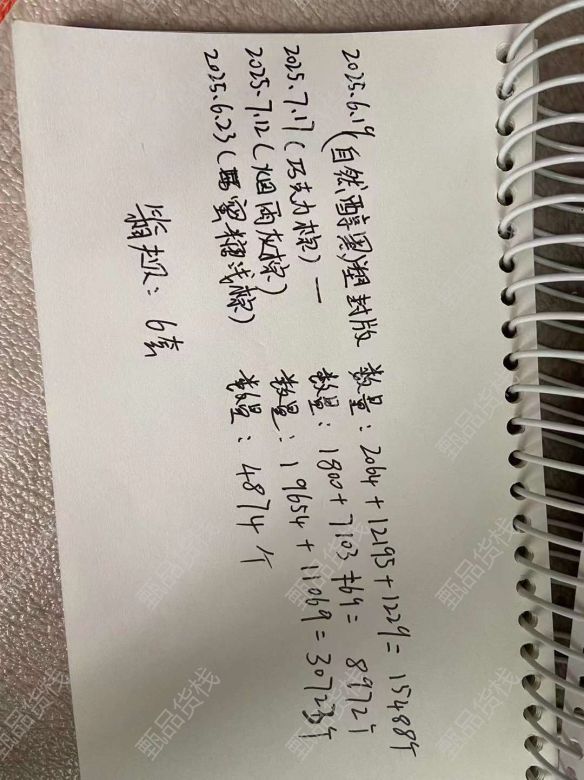 2025.6.19(自然醇黑)塑封版 数量：2064+12195+1229=15488个
2025.7.17(巧克力棕)— 数量：1800+7103+69=8972个
2025.7.12(烟雨灰棕) 数量：19654+11069=30723个
2025.6.23(蜜糖浅棕) 数量：4874个
箱规：6套
甄品货栈